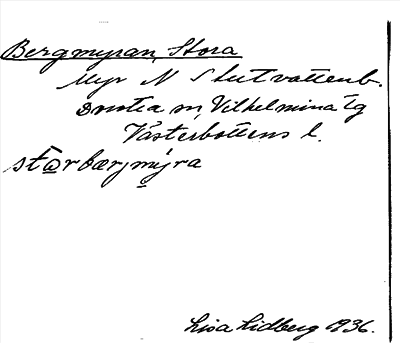 Bergmyran, Stora
Myr N Slutvattenb.
Dorotea sn, Vilhelmina tg
Västerbottens l.
stɷrbærjmýra
Lisa Lidberg 1936.